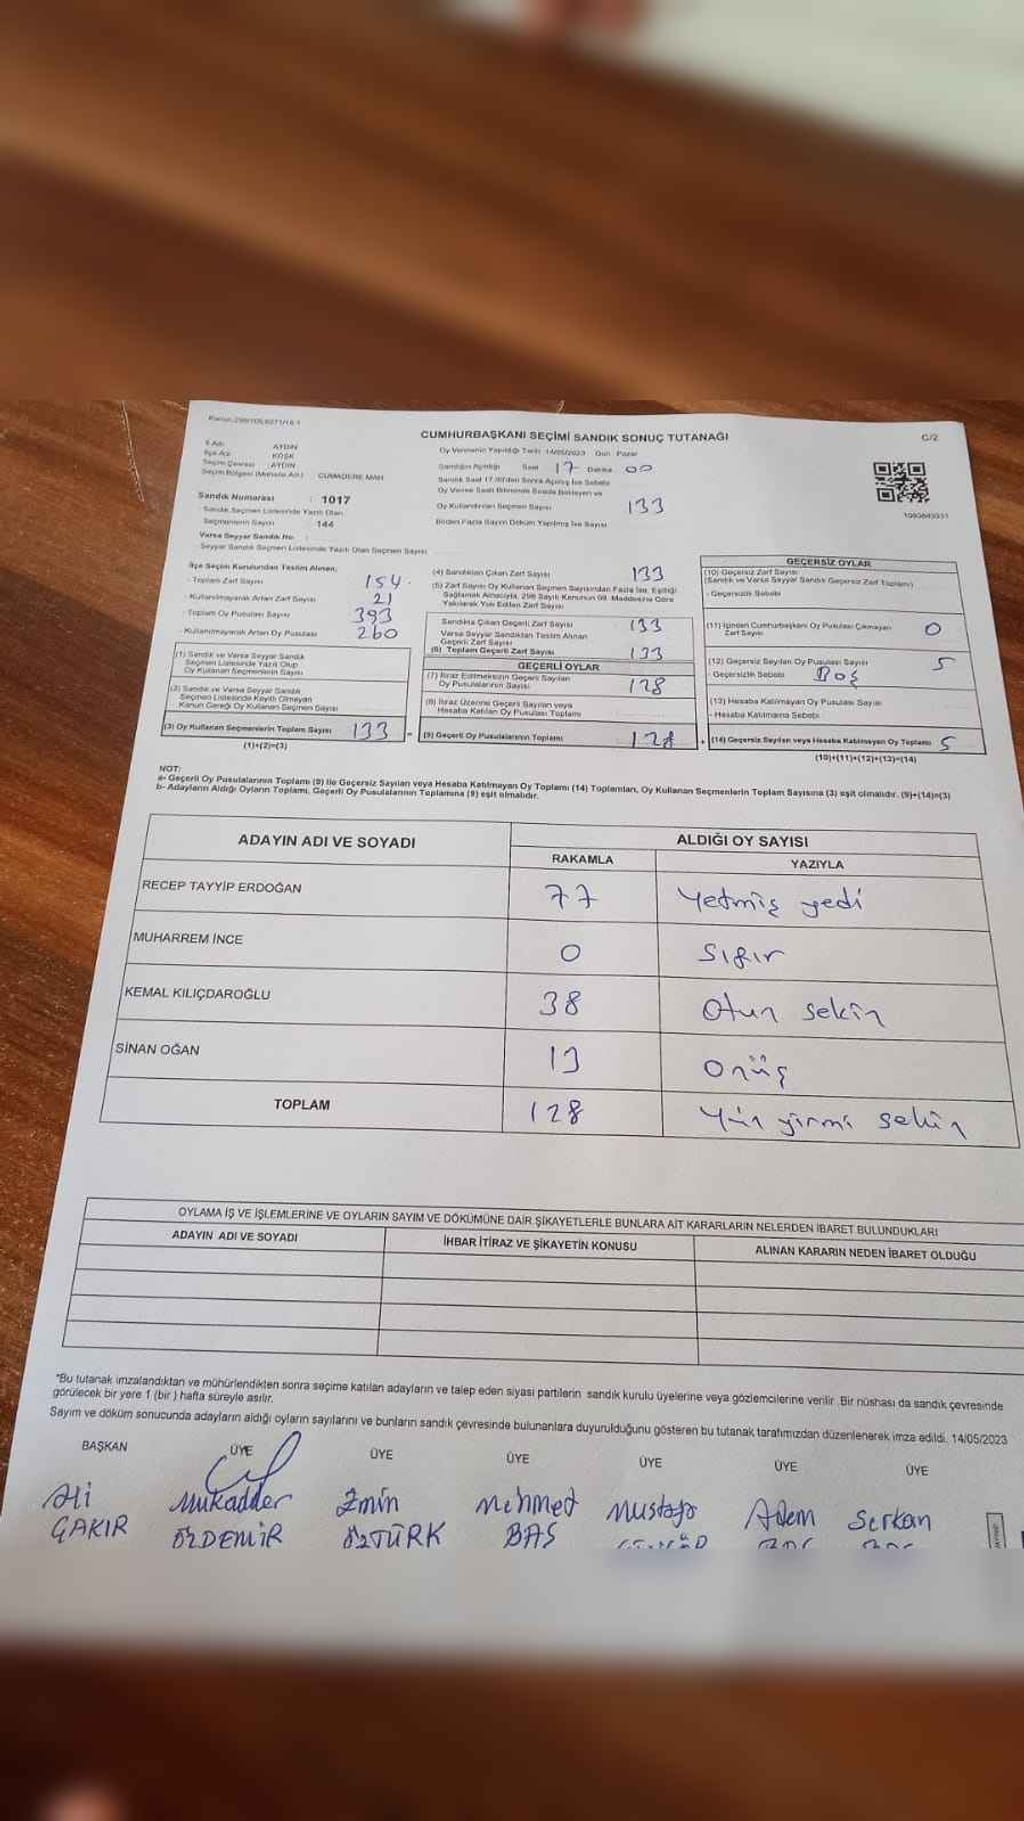 CUMHURBAŞKANI SEÇİMİ SANDIK SONUÇ TUTANAĞI
C/2
İl Adı AYDIN
İlçe Adı KÖŞK
Seçim Çevresi AYDIN
Seçim Bölgesi (Mahalle Adı) CUMADERE MAH
Oy Vermenin Yapıldığı Tarih 14/05/2023 Gün Pazar
Sandığın Açıldığı Saat 17 Dakika 00
Sandık Numarası : 1017
Sandık Seçmen Listesinde Yazılı Olan
Seçmenlerin Sayısı : 144
Varsa Seyyar Sandık No
Seyyar Sandık Seçmen Listesinde Yazılı Olan Seçmen Sayısı
Sandık Saat 17.00'den Sonra Açılmış İse Sebebi
Oy Verme Saati Bitiminde Sırada Bekleyen ve
Oy Kullandırılan Seçmen Sayısı 133
Birden Fazla Sayım Döküm Yapılmış İse Sayısı
1093643931
İlçe Seçim Kurulundan Teslim Alınan;
- Toplam Zarf Sayısı 154
- Kullanılmayarak Artan Zarf Sayısı 21
- Toplam Oy Pusulası Sayısı 393
- Kullanılmayarak Artan Oy Pusulası 260
(1) Sandık ve Varsa Seyyar Sandık
Seçmen Listesinde Yazılı Olup
Oy Kullanan Seçmenlerin Sayısı
(2) Sandık ve Varsa Seyyar Sandık
Seçmen Listesinde Kayıtlı Olmayan
Kanun Gereği Oy Kullanan Seçmen Sayısı
(3) Oy Kullanan Seçmenlerin Toplam Sayısı 133
(1)+(2)=(3)
(4) Sandıktan Çıkan Zarf Sayısı 133
(5) Zarf Sayısı Oy Kullanan Seçmen Sayısından Fazla İse, Eşitliği
Sağlamak Amacıyla, 298 Sayılı Kanunun 98. Maddesine Göre
Yakılarak Yok Edilen Zarf Sayısı
Sandıkta Çıkan Geçerli Zarf Sayısı 133
Varsa Seyyar Sandıktan Teslim Alınan
Geçerli Zarf Sayısı
(6) Toplam Geçerli Zarf Sayısı 133
GEÇERLİ OYLAR
(7) İtiraz Edilmeksizin Geçerli Sayılan
Oy Pusulalarının Sayısı 128
(8) İtiraz Üzerine Geçerli Sayılan veya
Hesaba Katılan Oy Pusulası Toplamı
= (9) Geçerli Oy Pusulalarının Toplamı 128
GEÇERSİZ OYLAR
(10) Geçersiz Zarf Sayısı
(Sandık ve Varsa Seyyar Sandık Geçersiz Zarf Toplamı)
- Geçersizlik Sebebi
(11) İçinden Cumhurbaşkanı Oy Pusulası Çıkmayan
Zarf Sayısı 0
(12) Geçersiz Sayılan Oy Pusulası Sayısı 5
- Geçersizlik Sebebi Boş
(13) Hesaba Katılmayan Oy Pusulası Sayısı
- Hesaba Katılmama Sebebi
+ (14) Geçersiz Sayılan veya Hesaba Katılmayan Oy Toplamı 5
(10)+(11)+(12)+(13)=(14)
NOT:
a- Geçerli Oy Pusulalarının Toplamı (9) ile Geçersiz Sayılan veya Hesaba Katılmayan Oy Toplamı (14) Toplamları, Oy Kullanan Seçmenlerin Toplam Sayısına (3) eşit olmalıdır. (9)+(14)=(3)
b- Adayların Aldığı Oyların Toplamı, Geçerli Oy Pusulalarının Toplamına (9) eşit olmalıdır.
ADAYIN ADI VE SOYADI
ALDIĞI OY SAYISI
RAKAMLA YAZIYLA
RECEP TAYYİP ERDOĞAN 77 Yetmiş yedi
MUHARREM İNCE 0 Sıfır
KEMAL KILIÇDAROĞLU 38 Otuz sekiz
SİNAN OĞAN 13 Onüç
TOPLAM 128 Yüz yirmi sekiz
OYLAMA İŞ VE İŞLEMLERİNE VE OYLARIN SAYIM VE DÖKÜMÜNE DAİR ŞİKAYETLERLE BUNLARA AİT KARARLARIN NELERDEN İBARET BULUNDUKLARI
ADAYIN ADI VE SOYADI İHBAR İTİRAZ VE ŞİKAYETİN KONUSU ALINAN KARARIN NEDEN İBARET OLDUĞU
*Bu tutanak imzalandıktan ve mühürlendikten sonra seçime katılan adayların ve talep eden siyasi partilerin sandık kurulu üyelerine veya gözlemcilerine verilir. Bir nüshası da sandık çevresinde
görülecek bir yere 1 (bir) hafta süreyle asılır.
Sayım ve döküm sonucunda adayların aldığı oyların sayılarını ve bunların sandık çevresinde bulunanlara duyurulduğunu gösteren bu tutanak tarafımızdan düzenlenerek imza edildi. 14/05/2023
BAŞKAN ÜYE ÜYE ÜYE ÜYE ÜYE ÜYE
Ali Mukadder Emin Mehmed Mustafa Adem Serkan
ÇAKIR ÖZDEMİR ÖZTÜRK BAŞ